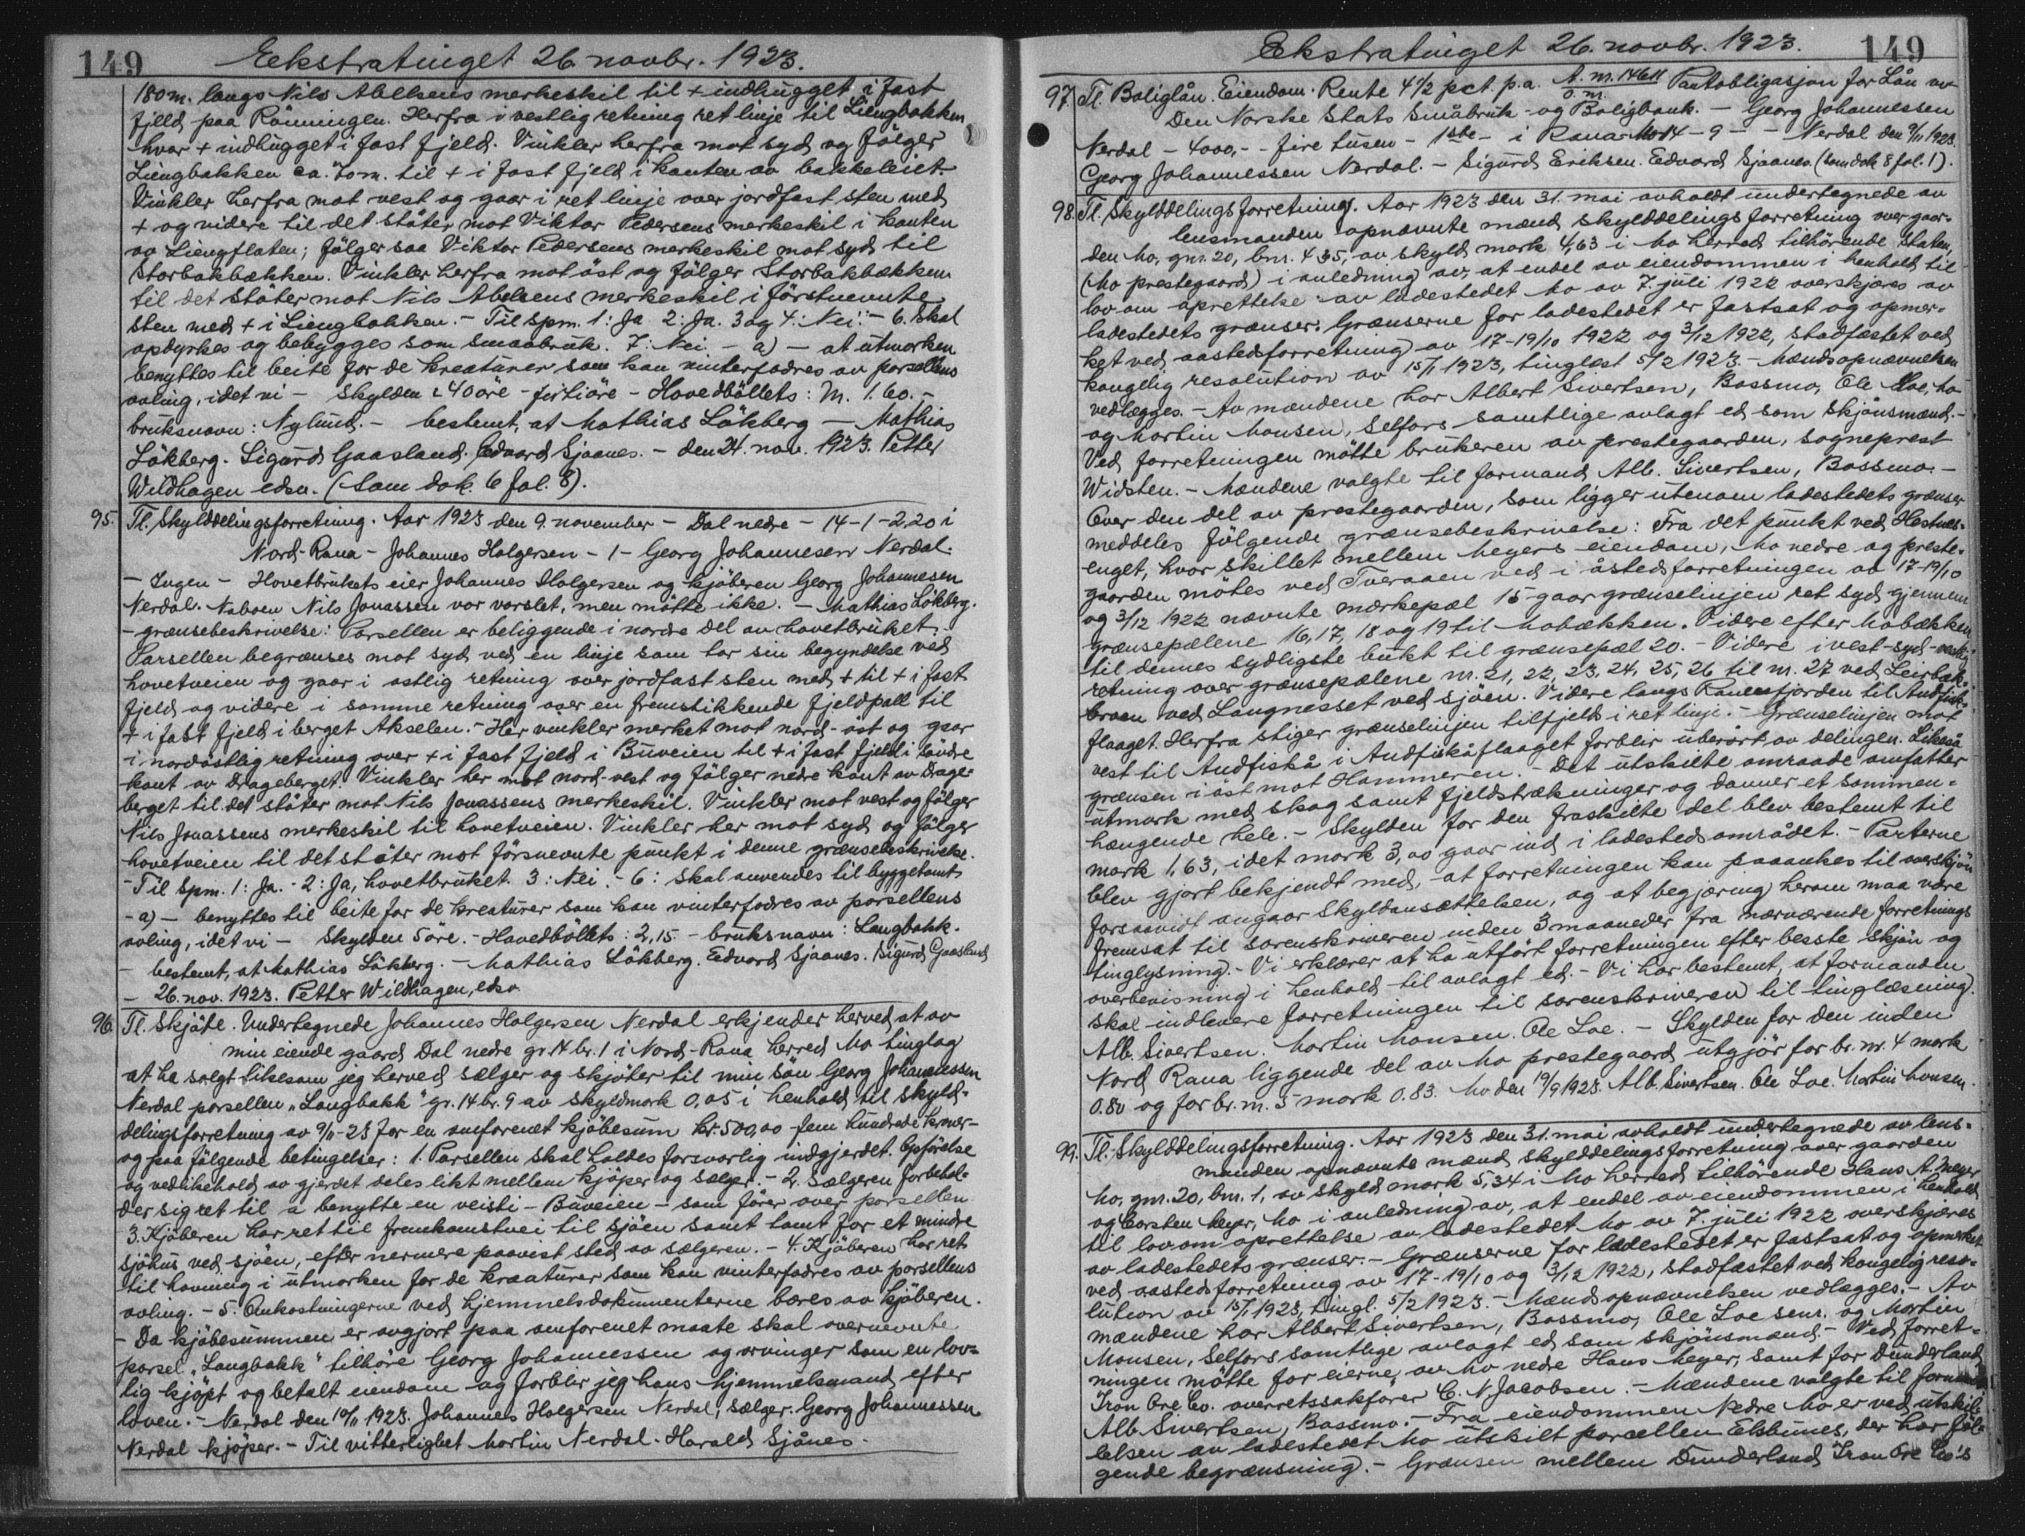 149
Ekstratinget 26. novbr. 1923.
180 m. langs Nils Abelsens merkeskil til + indhugget i fast
fjeld paa Rönningen. Herfra i vestlig retning ret linje til Liengbakken
hvor + indhugget i fast fjeld. Vinkler herfra mot syd og fölger
Liengbakken ca. 70 m. til + i fast fjeld i kanten av bakkeleiet.
Vinkler herfra mot vest og gaar i ret linje over jordfast sten med
+ og videre til det stöter mot Viktor Pedersens merkeskil i kanten
av Liengflaten; fölger saa Viktor Pedersens merkeskil mot syd til
Storbakbækken. Vinkler herfra mot öst og fölger Storbakbækken
til det stöter mot Nils Abelsens merkeskil i förstnevnte
sten med + i Liengbakken. - Til spm. 1: Ja 2: Ja. 3 og 4: Nei: - 6. Skal
opdyrkes og bebygges som smaabruk. 7: Nei. - a) - at utmarken
benyttes til beite for de kreaturer som kan vinterfödres av parsellens
avling, idet vi - Skylden 40 öre - förtiöre - Hovedböllets: M. 1.60. -
bruksnavn: Nylund. - bestemt, at Mathias Lökberg - Mathias
Lökberg. Sigurd Gaasland. Edvard Sjaanes. - den 24. nov. 1923. Petter
Wildhagen edsv. (Som dok. 6 fol. 8).
95. Tl. Skylddelingsforretning. Aar 1923 den 9. november - Dal nedre - 14 - 1 - 2,20 i
Nord-Rana - Johannes Holgersen - 1 - Georg Johannesen Nerdal.
- Ingen - Hovetbrukets eier Johannes Holgersen og kjöberen Georg Johannesen
Nerdal. Naboen Nils Jonassen var varslet, men mötte ikke. - Mathias Lökberg.
- grænsebeskrivelse: Parsellen er beliggende i nordre del av hovetbruket.
Parsellen begrænses mot syd ved en linje som har sin begyndelse ved
hovetveien og gaar i östlig retning over jordfast sten med + til + i fast
fjeld og videre i samme retning over en fremstikkende fjeldpall til
+ i fast fjeld i berget Akselen. - Her vinkler merket mot nord-öst og gaar
i nordöstlig retning over + i fast fjeld i Buveien til + i fast fjeld i söndre
kant av Drageberget. Vinkler her mot nord-vest og fölger nedre kant av Drage-
berget til det stöter mot Nils Jonassens merkeskil. Vinkler mot vest og fölger
Nils Jonassens merkeskil til hovetveien. Vinkler her mot syd og fölger
hovetveien til det stöter mot försnevnte punkt i denne grænsebeskrivelse.
- Til Spm. 1: Ja. - 2: Ja, hovetbruket. 3: Nei. - 6: Skal anvendes til byggetomt
- a) - benyttes til beite for de kreaturer som kan vinterfödres av parsellens
avling, idet vi - Skylden 5 öre. - Hovedböllets: 2,15. - bruksnavn: Langbakk.
- bestemt, at Mathias Lökberg. - Mathias Lökberg. Edvard Sjaanes. Sigurd Gaasland
- 26. nov. 1923. Petter Wildhagen, edsv.
96. Tl. Skjöte. Undertegnede Johannes Holgersen Nerdal erkjender herved at av
min eiende gaard Dal nedre gr. 14 br. 1 i Nord-Rana herred Mo tinglag
at ha solgt likesom jeg herved sælger og skjöter til min sön Georg Johannessen
Nerdal parsellen "Langbakk" gr. 14 br. 9 av skyldmark 0,05 i henhold til skyld-
delingsforretning av 9/11-23 for en omforenet kjöbesum kr. 500,00 - fem hundrede kroner -
og paa fölgende betingelser: 1. Parsellen skal holdes forsvarlig indgjerdet. Opförelse
og vedlikehold av gjerdet deles likt mellem kjöper og sælger. - 2. Sælgeren forbehol-
der sig ret til å benytte en veisti - Buveien - som förer over parsellen
3. Kjöberen har ret til fremkomstvei til sjöen samt tomt for et mindre
sjöhus ved sjöen, efter nermere paavist sted av sælgeren. - 4. Kjöberen har ret
til havning i utmarken for de kreaturer som kan vinterfödres av parsellens
avling. - 5. Omkostningerne ved hjemmelsdokumenterne bæres av kjöberen.
- Da kjöbesummen er avgjort paa omforenet maate skal overnevnte
parsel "Langbakk" tilhöre Georg Johannessen og arvinger som en lov-
lig kjöpt og betalt eiendom og forblir jeg hans hjemmelsmand efter
loven. - Nerdal den 10/11 1923. Johannes Holgersen Nerdal, sælger. Georg Johannessen
Nerdal kjöper. - Til vitterlighet Martin Nerdal. Harald Sjånes.
149
Ekstratinget 26. novbr. 1923.
97. Tl. Boliglån. Eiendom. Rente 4 1/2 pct. p.a. A. nr. 14611 o. m. Pantobligasjon for Lån av
Den Norske Stats Småbruk- og Boligbank. - Georg Johannessen
Nerdal - 4000,- - fire tusen - 1ste - i Rana - 14 - 9 - - Nerdal den 9/11 1923.
Georg Johannessen Nerdal. - Sigurd Eriksen. Edvard Sjaanes. (Som dok 8 fol. 1).
98. Tl. Skylddelingsforretning. Aar 1923 den 31. mai avholdt undertegnede av
lensmanden opnævnte mænd skylddelingsforretning over gaar-
den Mo, gnr. 20, bnr. 4 & 5, av skyld mark 4,63 i Mo herred tilhörende Staten,
(Mo prestegaard) i anledning av, at endel av eiendommen i henhold til
lov om oprettelse av ladestedet Mo av 7. juli 1922 overskjæres av
ladestedets grænser. Grænserne for ladestedet er fastsat og opmer-
ket ved aastedsforretning av 17-19/10 1922 og 3/12 1922, stadfæstet ved
kongelig resolution av 15/1 1923, tinglæst 5/2 1923. - Mændsopnævnelsen
vedlægges. - Av mændene har Albert Sivertsen, Bossmo, Ole Loe, Mo
og Martin Monsen, Selfors samtlige avlagt ed som skjönsmænd. -
Ved forretningen mötte brukeren av prestegaarden, sogneprest
Widsten. - Mændene valgte til formand Alb. Sivertsen, Bossmo. -
Over den del av prestegaarden, som ligger utenom ladestedets grænser
meddeles fölgende grænsebeskrivelse: Fra det punkt ved Hestnes-
enget, hvor skillet mellem Meyers eiendom, Mo nedre og preste-
gaarden mötes ved Tveraaen ved i åstedsforretningen av 17-19/10
og 3/12 1922 nævnte merkepæl 15 gaar grænselinjen ret syd gjennem
grænsepælene 16, 17, 18 og 19 til Mobækken. Videre efter Mobækken
til dennes sydligste bukt til grænsepæl 20. - Videre i vest-syd-vestlig
retning over grænsepælene nr. 21, 22, 23, 24, 25, 26 til nr. 27 ved Leirbæk-
broen ved Langnesset ved sjöen. Videre langs Ranenfjorden til Andfisk-
flaaget. Herfra stiger grænselinjen tilfjelds i ret linje. - Grænselinjen mot
vest til Andfiskå i Andfiskåflaaget forblir uberört av delingen. Likeså
grænsen i öst mot Hammeren. - Det utskilte omraade omfatter
utmark med skog samt fjeldstrækninger og danner et sammen-
hængende hele. - Skylden for den fraskilte del blev bestemt til
mark 1,63, idet mark 3,00 gaar ind i ladestedsområdet. - Parterne
blev gjort bekjendt med, at forretningen kan paaankes til overskjön
forsaavidt angaar skyldansættelsen, og at begjæring herom maa være
fremsat til sorenskriveren inden 3 maaneder fra nærværende forretnings
tinglysning. - Vi erklærer at ha utfört forretningen efter beste skjön og
overbevisning i henhold til avlagt ed. - Vi har bestemt, at formanden
skal indlevere forretningen til sorenskriveren til tinglæsning.
Alb. Sivertsen. Martin Monsen. Ole Loe. - Skylden for den inden
Nord Rana liggende del av Mo prestegaard utgjör for br. nr. 4 mark
0.80 og for br. nr. 5 mark 0.83. Mo den 19/9 1923. Alb. Sivertsen. Ole Loe. Martin Monsen.
99. Tl. Skylddelingsforretning. Aar 1923 den 31. mai avholdt undertegnede av lens-
manden opnævnte mænd skylddelingsforretning over gaarden
Mo, gnr. 20, bnr. 1, av skyld mark 5,34 i Mo herred tilhörende Hans A. Meyer
og Corsten Meyer, Mo i anledning av, at endel av eiendommen i henhold
til lov om oprettelse av ladestedet Mo av 7. juli 1922 overskjæres
av ladestedets grænser. - Grænserne for ladestedet er fastsat og opmerket
ved aastedsforretning av 17-19/10 og 3/12 1922, stadfæstet ved kongelig reso-
lution av 15/1 1923, tingl. 5/2 1923. - Mændsopnævnelsen vedlægges. - Av
mændene har Albert Sivertsen, Bossmo, Ole Loe senr. og Martin
Monsen, Selfors samtlige avlagt ed som skjönsmænd - Ved forret-
ningen mötte for eierne av Mo nedre Hans Meyer, samt for Dunderland
Iron Ore Co. overretssakförer C. N. Jacobsen. - Mændene valgte til formand
Alb. Sivertsen, Bossmo. - Fra eiendommen Nedre Mo er ved utskil-
lelsen av ladestedet Mo utskilt parcellen Ebbunes, der har föl-
gende begrænsning. - Grænsen mellem Dunderland Iron Ore Co's